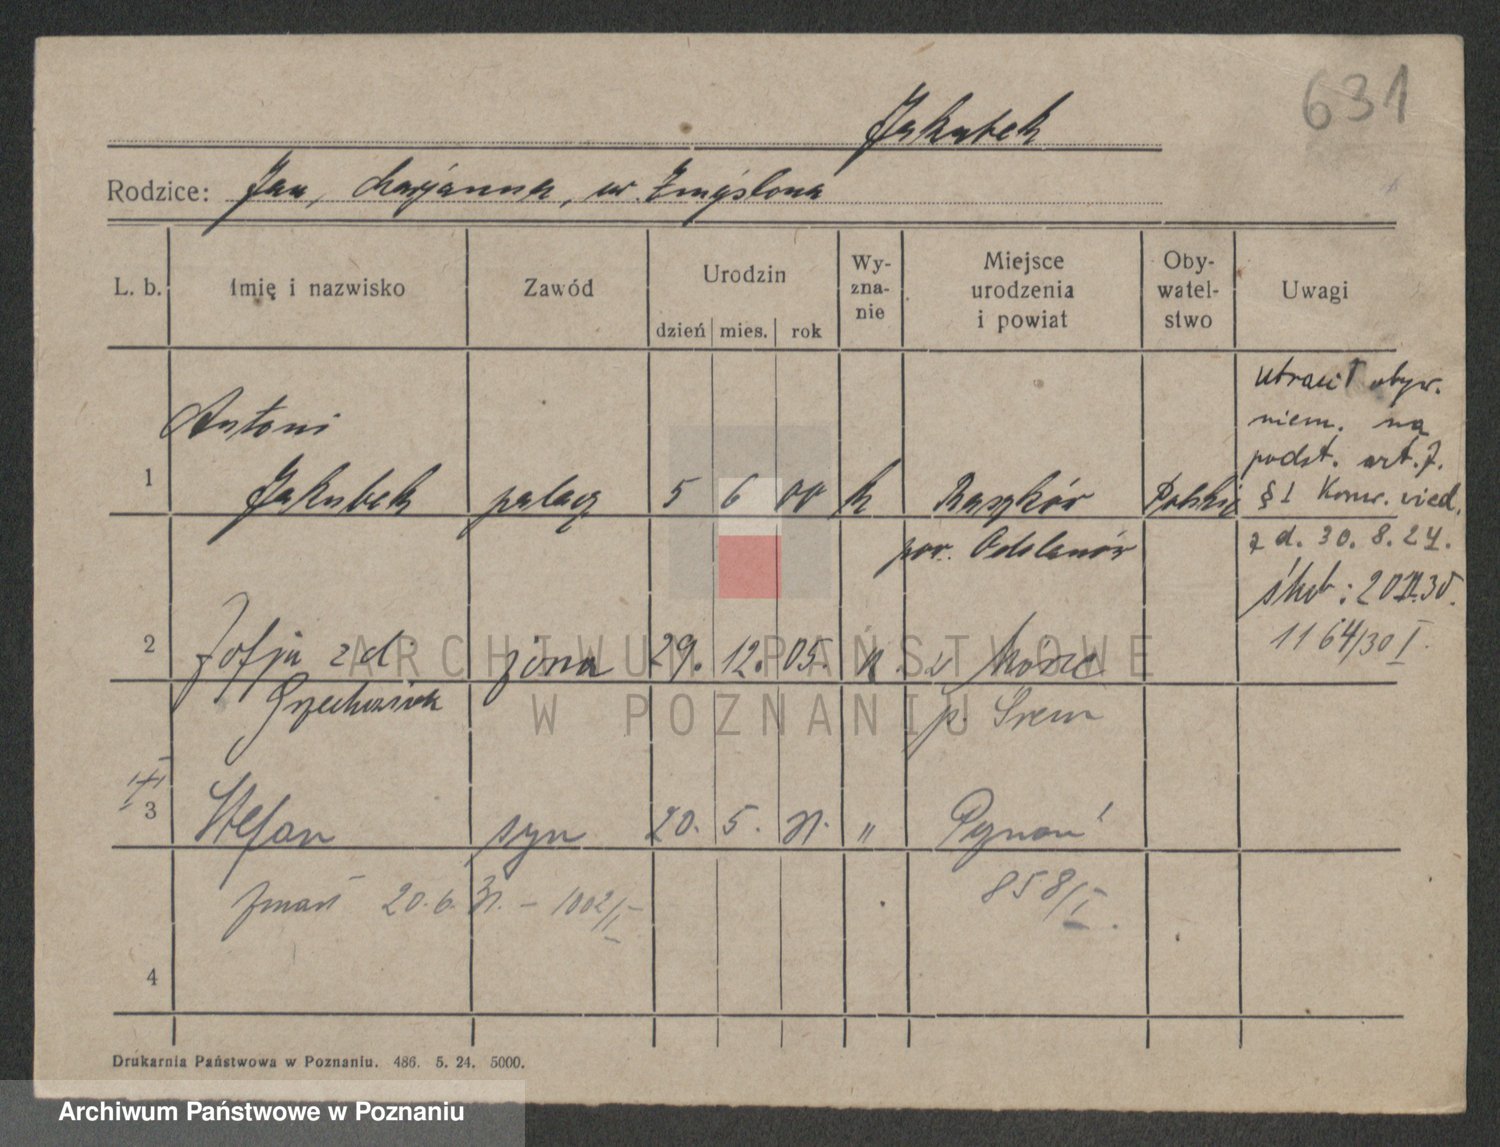 631
Jakubek
Rodzice: Jan, Marjanna, ur. Zmyślona
L. b. Imię i nazwisko Zawód Urodzin dzień mies. rok Wy-zna-nie Miejsce urodzenia i powiat Oby-watel-stwo Uwagi
utracił obyw.
niem. na
podst. art. 7.
§ 1 Konw. wied.
z d. 30. 8. 24.
Antoni
1 Jakubek palacz 5 6 00 k Raszków Polskie
pow. Odolanów
2 Zofja z d. żona 29. 12. 05. k.
Grzechowiak p. Śrem
1164/30 I.
3 Stefan syn 20. 5. 31. „ Poznań
zmarł 20. 6. 31. – 1002/I 858/I.
4
Drukarnia Państwowa w Poznaniu. 486. 5. 24. 5000.
ARCHIWUM PAŃSTWOWE
W POZNANIU
Archiwum Państwowe w Poznaniu